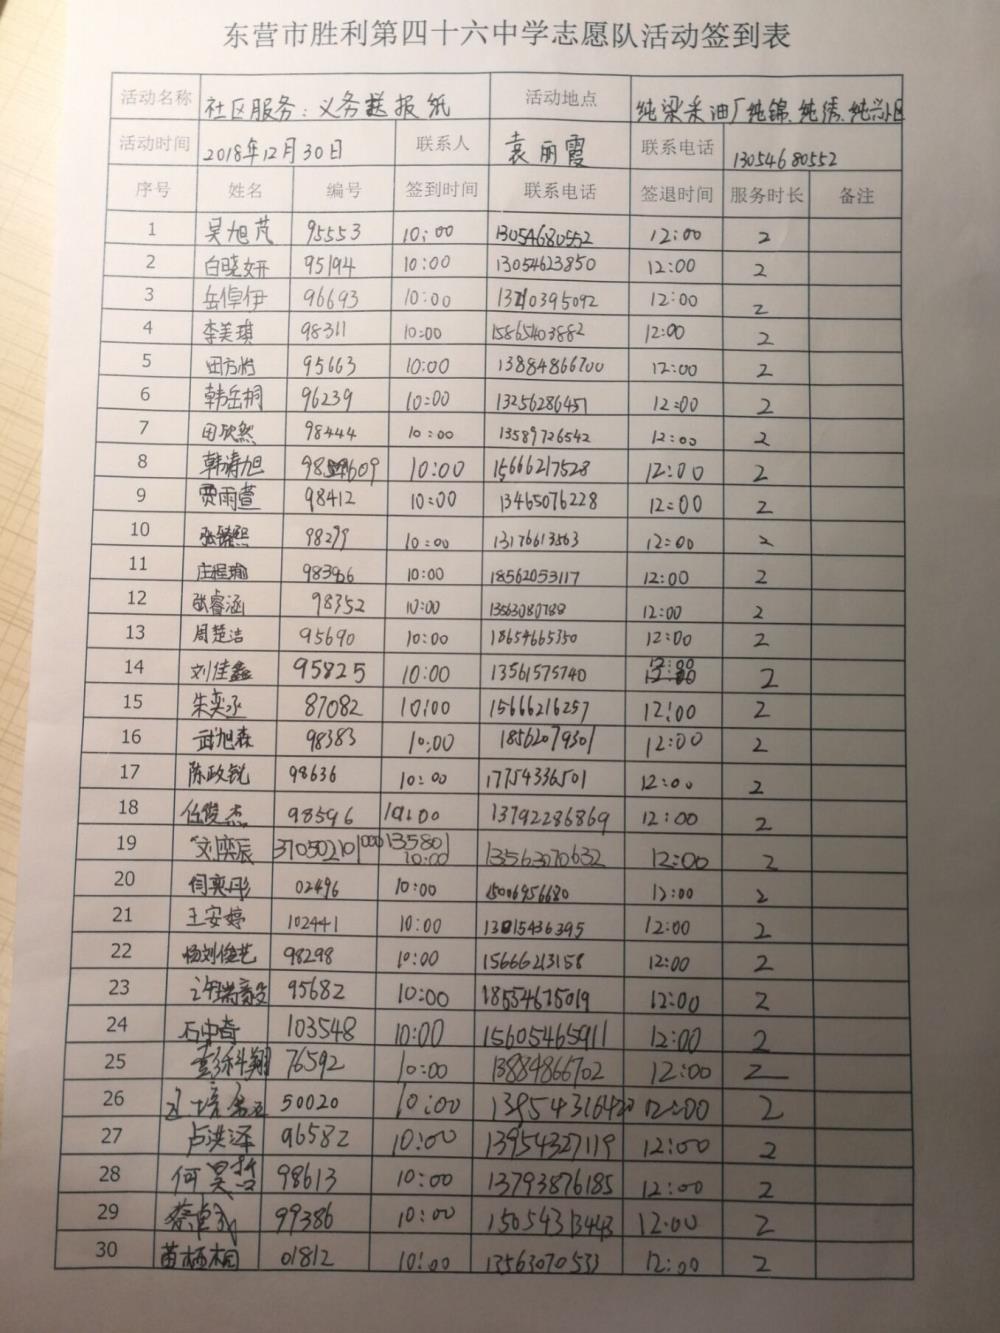 东营市胜利第四十六中学志愿队活动签到表
活动名称 社区服务：义务送报纸 活动地点 纯梁采油厂纯锦、纯绣、纯兴小区
活动时间 2018年12月30日 联系人 袁丽霞 联系电话 13054680552
序号 姓名 编号 签到时间 联系电话 签退时间 服务时长 备注
1 吴旭芃 95553 10:00 13054680552 12:00 2
2 白晓妍 95194 10:00 13054623850 12:00 2
3 岳倬伊 96693 10:00 12:00 2
4 李美璇 98311 10:00 15865403882 12:00 2
5 田方怡 95663 10:00 13884866700 12:00 2
6 韩岳桐 96239 10:00 13256286451 12:00 2
7 田欣然 98444 10:00 13589726542 12:00 2
8 韩清旭 10:00 15666217528 12:00 2
9 贾雨萱 98412 10:00 13465076228 12:00 2
10 98279 10:00 13176613563 12:00 2
11 庄程瑜 10:00 18562053117 12:00 2
12 张睿涵 98352 10:00 13563080788 12:00 2
13 周楚洁 95690 10:00 18654665350 12:00 2
14 刘佳鑫 95825 10:00 13561575740 12:00 2
15 朱奕丞 87082 10:00 15666216257 12:00 2
16 武旭森 98383 10:00 18562079301 12:00 2
17 陈政锐 98636 10:00 17754336501 12:00 2
18 任俊杰 98596 10:00 13792286869 12:00 2
19 刘奕辰 10:00 13563070632 12:00 2
20 闫奕彤 02496 10:00 15006956680 12:00 2
21 王安婷 102441 10:00 12:00 2
22 杨刘俊艺 98298 10:00 15666213158 12:00 2
23 许瑞毅 95682 10:00 18554675019 12:00 2
24 石中奇 103548 10:00 15605465911 12:00 2
25 彭科翔 76592 10:00 13884866702 12:00 2
26 50020 10:00 12:00 2
27 卢洪泽 96582 10:00 13954327119 12:00 2
28 何昊哲 98613 10:00 13793876185 12:00 2
29 99386 10:00 15054313443 12:00 2
30 苗栖桐 01812 10:00 13563070533 12:00 2